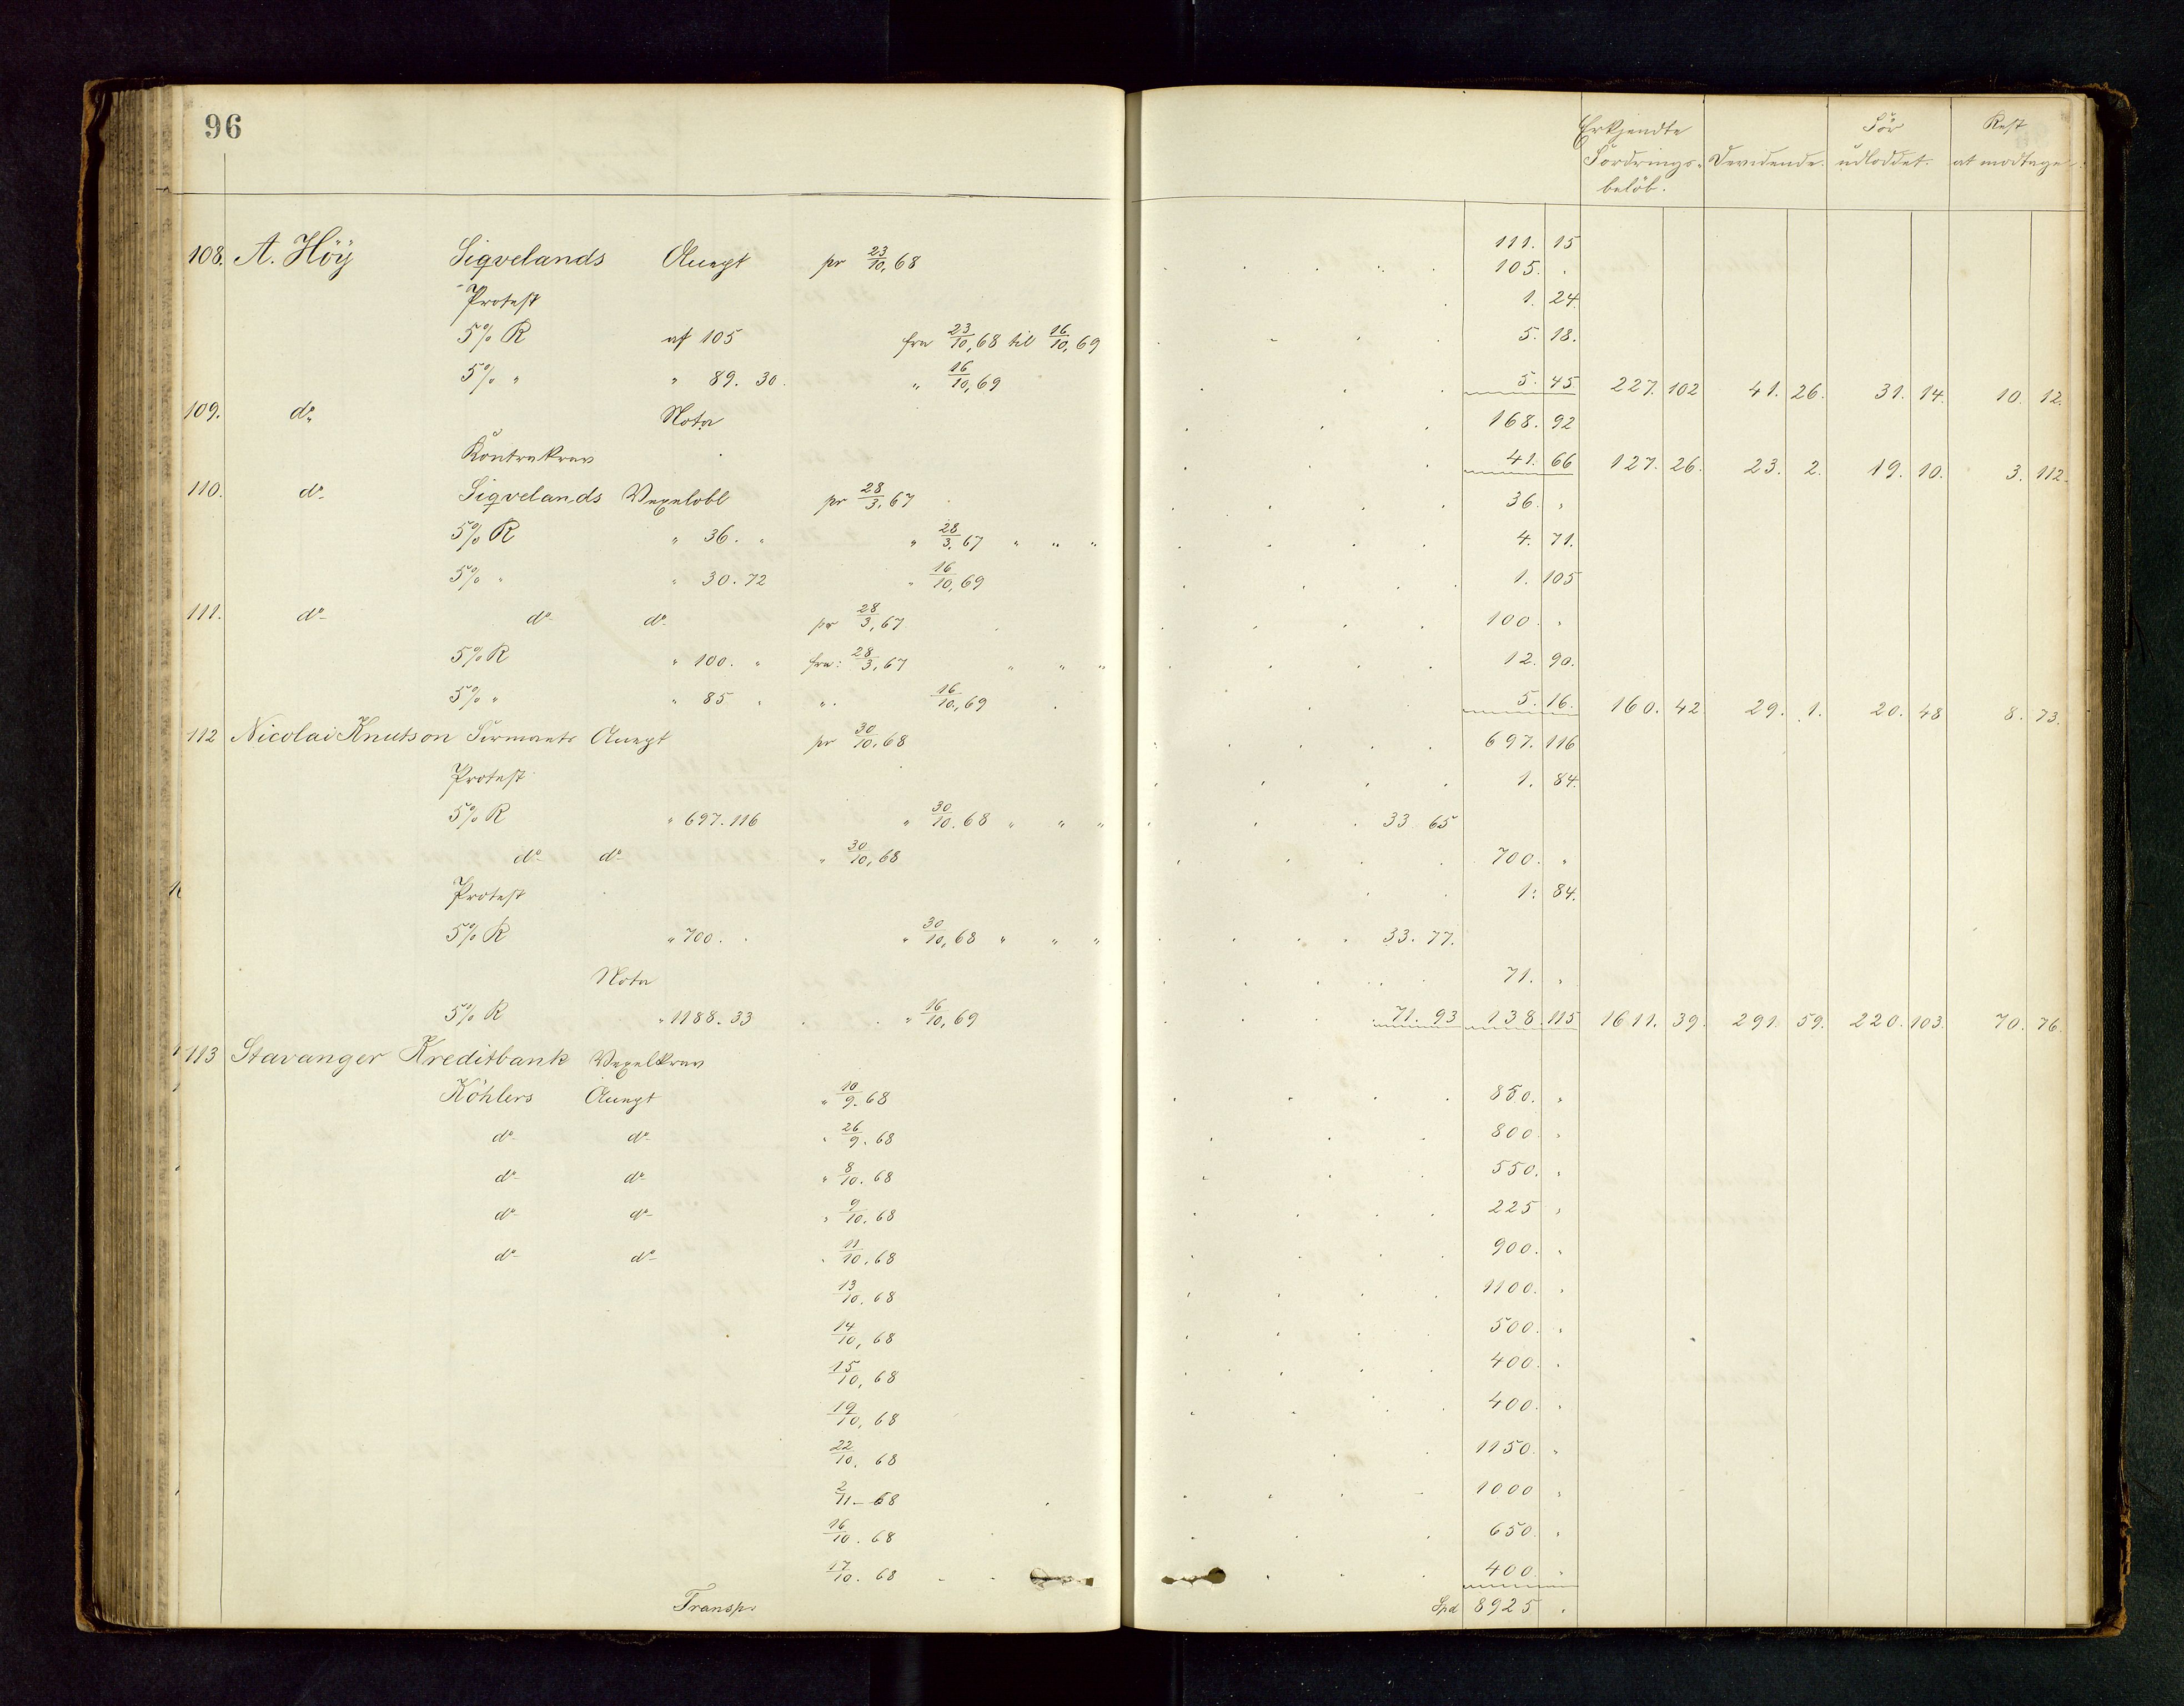 96
Erkjendte Fordrings-beløb. Dividende. Før udloddet. Rest at modtage.
111. 15
108. A. Höÿ Sigvelands Accept pr 23/10,68 105. "
Protest 1. 24
5% R af 105 fra 23/10,68 til 16/10,69 5. 18.
5% " " 89. 30. " 16/10,69 5. 45 227. 102 41. 26. 31. 14. 10. 12.
109. do Nota 168. 92
Kontrakrav 41. 66 127. 26. 23. 2. 19. 10. 3. 112.
110. do Sigvelands Vexelobl pr 28/3,67 36. "
5% R " 36. " " 28/3,67 " " " 4. 71.
5% " " 30. 72 " 16/10,69 1. 105
111. do do do pr 28/3,67 100. "
5% R " 100. " fra: 28/3,67 " " " 12. 90.
5% " " 85 " " 16/10,69 5. 16. 160. 42 29. 1. 20. 48 8. 73.
112 Nicolai Knutson Firmaets Accept pr 30/10,68 697. 116
Protest 1. 84.
5% R " 697. 116 " 30/10.68 " " " 33 65
do do " 30/10,68 700. "
Protest 1. 84.
5% R " 700. " " 30/10,68 " " " 33. 77.
Nota 71. "
5% R " 1188. 33 " 16/10,69 71. 93 138. 115 1611. 39. 291. 59. 220. 103. 70. 76.
113 Stavanger Kreditbank Vexelkrav
Köhlers Accept " 10/9.68 850. "
do do " 26/9.68 800. "
do do " 8/10.68 550. "
do do " 9/10.68 225 "
do do " 11/10.68 900. "
13/10.68 1100. "
14/10,68 500. "
15/10,68 400. "
19/10,68 400. "
22/10.68 1150. "
2/11-68 1000 "
16/10.68 650. "
17/10.68 400. "
Transp. Spd 8925 "